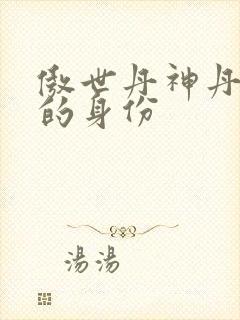 傲世丹神丹
的身份
湯湯